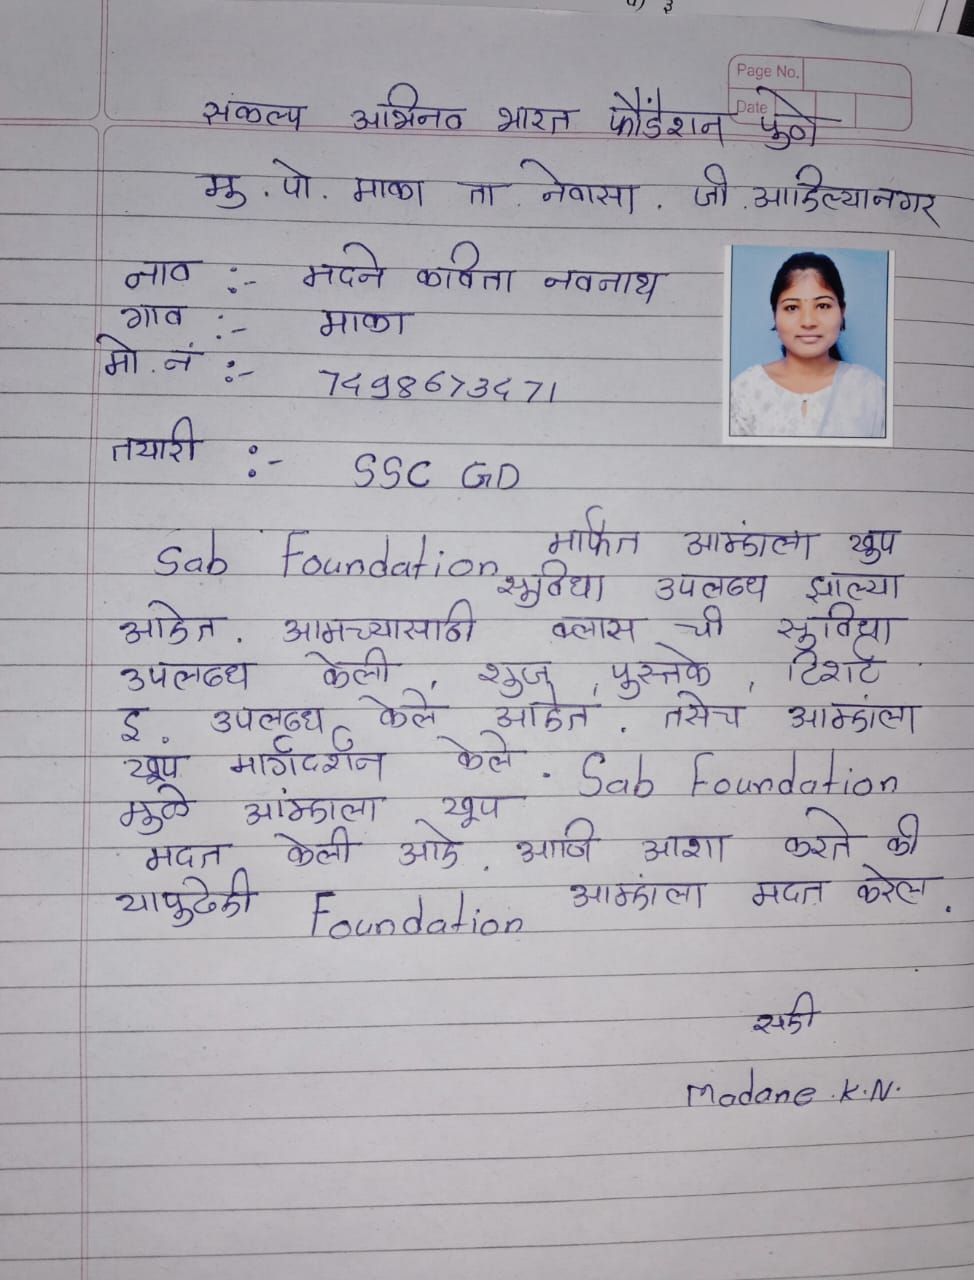 Page No.
Date
संकल्प अभिनव भारत फौंडेशन पुणे
मु. पो. माका ता. नेवासा. जी. आहिल्यानगर
नाव :- मदने कविता नवनाथ
गाव :- माका
मो. नं :- 7498673471
तयारी :- SSC GD
Sab Foundation मार्फत आम्हांला खुप
सुविधा उपलब्ध झाल्या
आहेत. आमच्यासाठी क्लास ची सुविधा
उपलब्ध केली, शुज, पुस्तके, टिशर्ट
इ. उपलब्ध केले आहेत. तसेच आम्हांला
खूप मार्गदर्शन केले. Sab Foundation
मुळे आंम्हाला खूप
मदत केली आहे. आणि आशा करते की
यापुढेही Foundation आम्हांला मदत करेल.
सही
Madane.K.N.